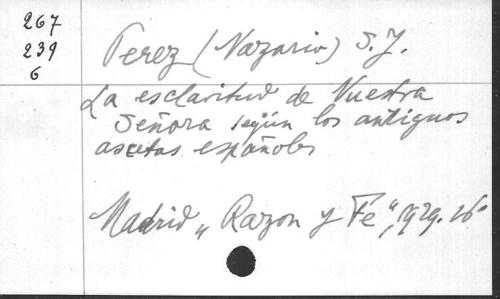 267
239
6
Perez (Nazario) S. J.
La esclavitud de Nuestra
Señora según los antiguos
ascetas españoles
Madrid „Razon y Fé", 1929. 16°